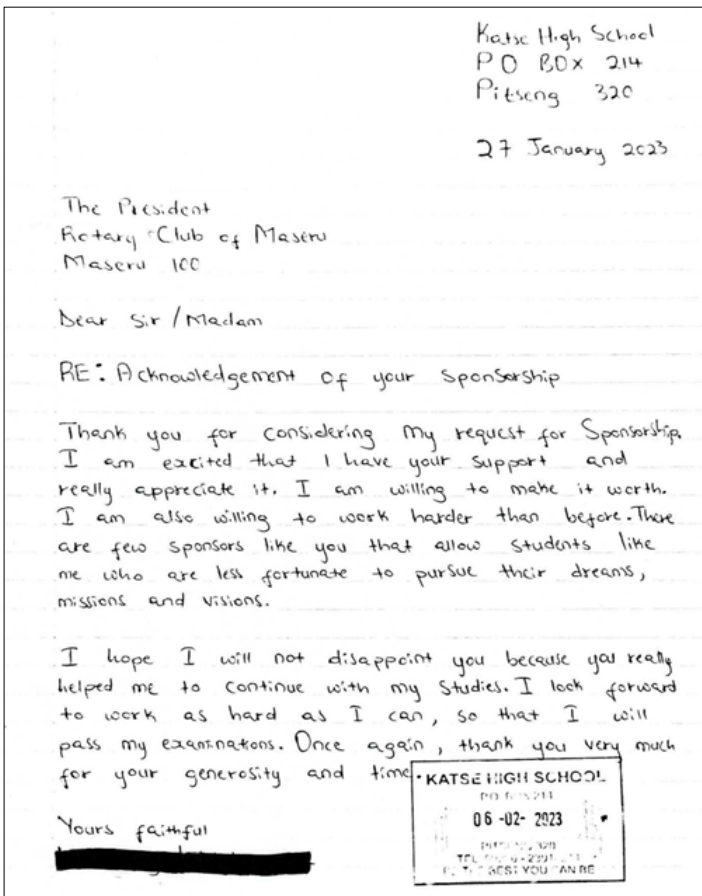 Katse High School
P O BOx 214
Pitseng 320
27 January 2023
The President
Rotary Club of Maseru
Maseru 100
Dear Sir / Madam
RE: Acknowledgement of your sponsorship
Thank you for considering my request for Sponsorship.
I am excited that I have your support and
really appreciate it. I am willing to make it worth.
I am also willing to work harder than before. There
are few sponsors like you that allow students like
me who are less fortunate to pursue their dreams,
missions and visions.
I hope I will not disappoint you because you really
helped me to continue with my studies. I look forward
to work as hard as I can, so that I will
pass my examinations. Once again, thank you very much
for your generosity and time.
KATSE HIGH SCHOOL
06 -02- 2023
BEST YOU CAN BE
Yours faithful